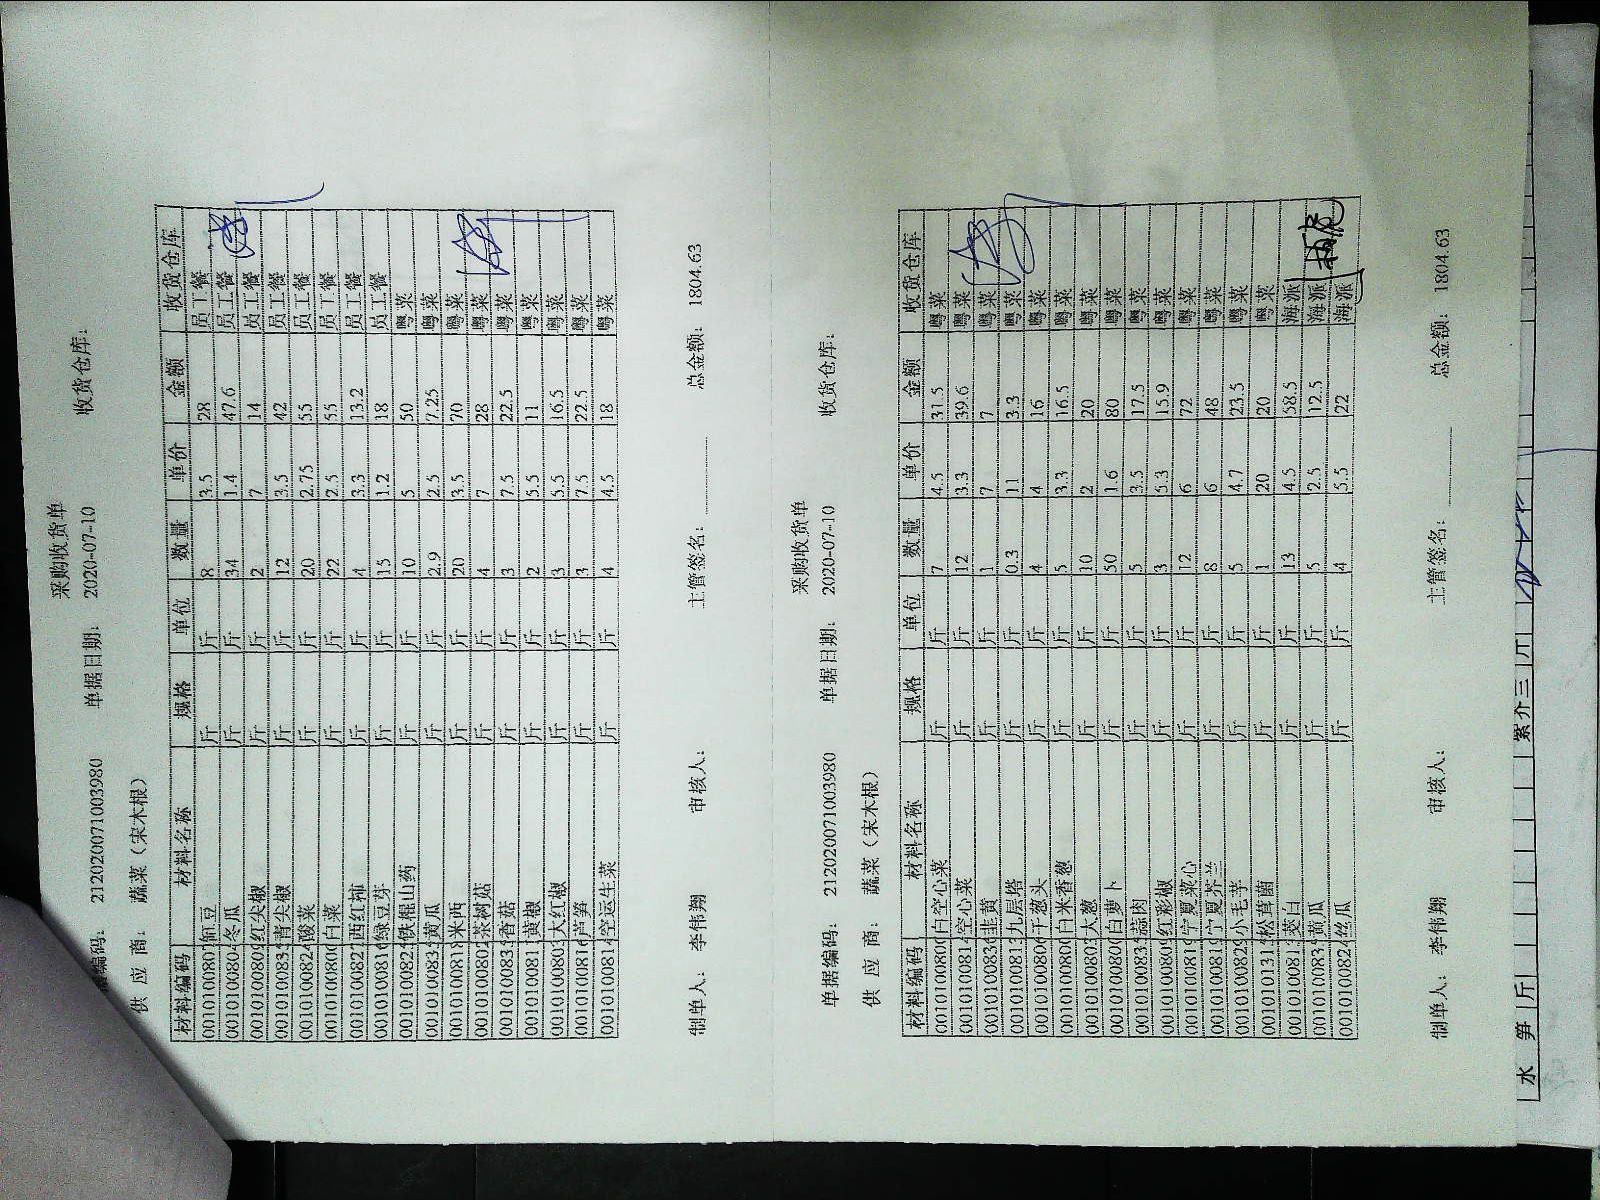 采购收货单
单据编码: 212020071003980 单据日期: 2020-07-10 收货仓库:
供 应 商: 蔬菜(宋木根)
材料编码 材料名称 规格 单位 数量 单价 金额 收货仓库
0010100807 豇豆 斤 斤 8 3.5 28 员工餐
0010100804 冬瓜 斤 斤 34 1.4 47.6 员工餐
0010100809 红尖椒 斤 斤 2 7 14 员工餐
0010100833 青尖椒 斤 斤 12 3.5 42 员工餐
0010100824 酸菜 斤 斤 20 2.75 55 员工餐
0010100800 白菜 斤 斤 22 2.5 55 员工餐
0010100827 西红柿 斤 斤 4 3.3 13.2 员工餐
0010100816 绿豆芽 斤 斤 15 1.2 18 员工餐
0010100826 铁棍山药 斤 斤 10 5 50 粤菜
0010100835 黄瓜 斤 斤 2.9 2.5 7.25 粤菜
0010100818 米西 斤 斤 20 3.5 70 粤菜
0010100802 茶树菇 斤 斤 4 7 28 粤菜
0010100833 香菇 斤 斤 3 7.5 22.5 粤菜
0010100811 黄椒 斤 斤 2 5.5 11 粤菜
0010100803 大红椒 斤 斤 3 5.5 16.5 粤菜
0010100816 芦笋 斤 斤 3 7.5 22.5 粤菜
0010100814 空运生菜 斤 斤 4 4.5 18 粤菜
制单人: 李伟翔 审核人: 主管签名: 总金额: 1804.63
采购收货单
单据编码: 212020071003980 单据日期: 2020-07-10 收货仓库:
供 应 商: 蔬菜(宋木根)
材料编码 材料名称 规格 单位 数量 单价 金额 收货仓库
0010100800 白空心菜 斤 斤 7 4.5 31.5 粤菜
0010100814 空心菜 斤 斤 12 3.3 39.6 粤菜
0010100836 韭黄 斤 斤 1 7 7 粤菜
0010100813 九层塔 斤 斤 0.3 11 3.3 粤菜
0010100806 干葱头 斤 斤 4 4 16 粤菜
0010100800 白米香葱 斤 斤 5 3.3 16.5 粤菜
0010100803 大葱 斤 斤 10 2 20 粤菜
0010100800 白萝卜 斤 斤 50 1.6 80 粤菜
0010100835 蒜肉 斤 斤 5 3.5 17.5 粤菜
0010100809 红彩椒 斤 斤 3 5.3 15.9 粤菜
0010100819 宁夏菜心 斤 斤 12 6 72 粤菜
0010100819 宁夏芥兰 斤 斤 8 6 48 粤菜
0010100829 小毛芋 斤 斤 5 4.7 23.5 粤菜
0010101312 松茸菌 斤 斤 1 20 20 粤菜
0010100813 茭白 斤 斤 13 4.5 58.5 海派
0010100835 黄瓜 斤 斤 5 2.5 12.5 海派
0010100824 丝瓜 斤 斤 4 5.5 22 海派
制单人: 李伟翔 审核人: 主管签名: 总金额: 1804.63
水 笋 斤